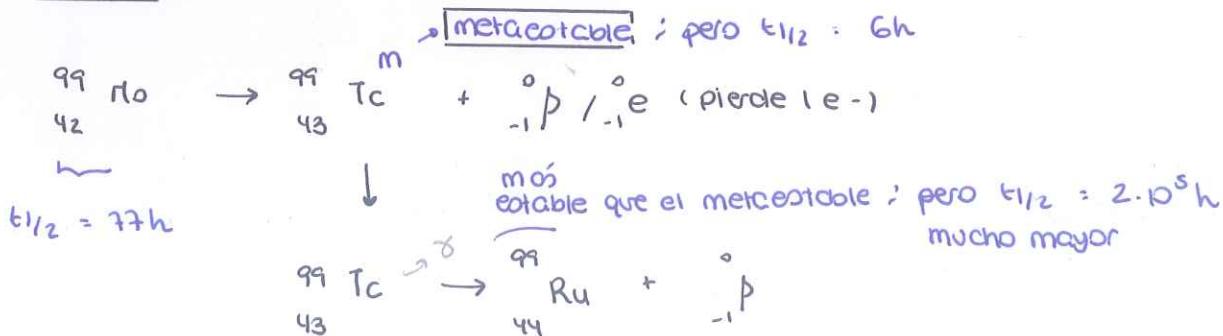 metaestable ; pero t1/2 : 6h
99 42 Mo → 99 43 Tc m + 0 -1 β / 0 -1 e ( pierde 1 e - )
t1/2 = 77h
↓
más estable que el metaestable ; pero t1/2 = 2·10⁵ h
mucho mayor
99 43 Tc → γ → 99 44 Ru + 0 -1 β